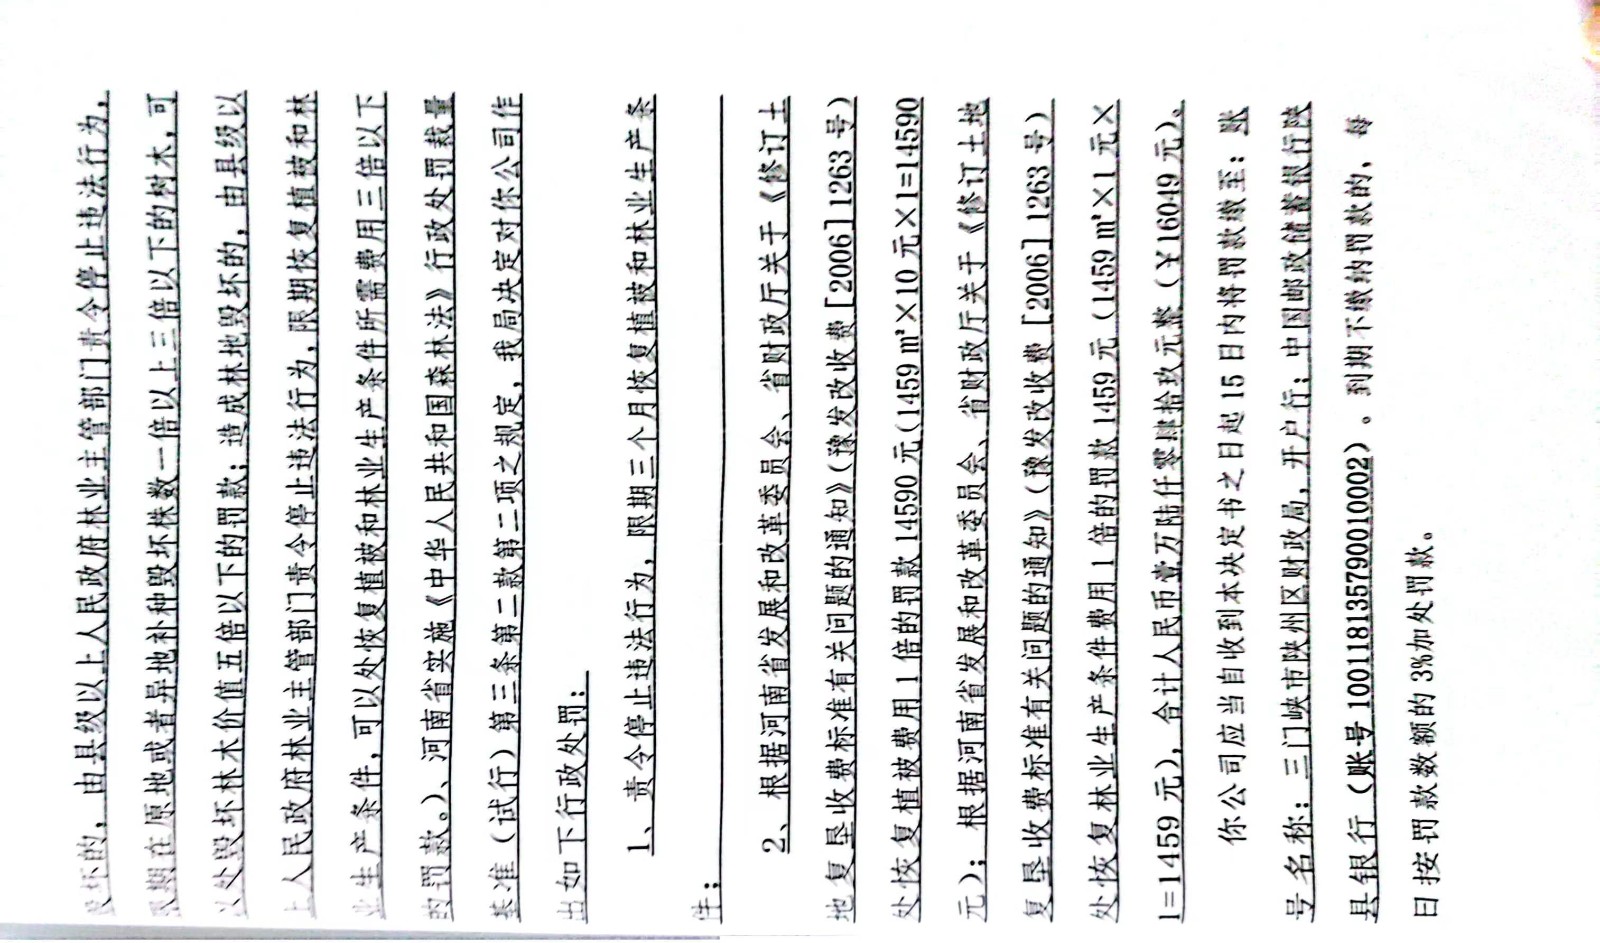 毁坏的，由县级以上人民政府林业主管部门责令停止违法行为，
限期在原地或者异地补种毁坏株数一倍以上三倍以下的树木，可
以处毁坏林木价值五倍以下的罚款；造成林地毁坏的，由县级以
上人民政府林业主管部门责令停止违法行为，限期恢复植被和林
业生产条件，可以处恢复植被和林业生产条件所需费用三倍以下
的罚款。）、河南省实施《中华人民共和国森林法》行政处罚裁量
基准（试行）第三条第二款第二项之规定，我局决定对你公司作
出如下行政处罚：
1、责令停止违法行为，限期三个月恢复植被和林业生产条
件；
2、根据河南省发展和改革委员会、省财政厅关于《修订土
地复垦收费标准有关问题的通知》（豫发改收费［2006］1263 号）
处恢复植被费用 1 倍的罚款 14590 元（1459 ㎡×10 元×1=14590
元）；根据河南省发展和改革委员会、省财政厅关于《修订土地
复垦收费标准有关问题的通知》（豫发改收费［2006］1263 号）
处恢复林业生产条件费用 1 倍的罚款 1459 元（1459 ㎡×1 元×
1=1459 元），合计人民币壹万陆仟零肆拾玖元整（￥16049 元）。
你公司应当自收到本决定书之日起 15 日内将罚款缴至：账
号名称：三门峡市陕州区财政局，开户行：中国邮政储蓄银行陕
县银行（账号 100118135790010002）。到期不缴纳罚款的，每
日按罚款数额的 3%加处罚款。